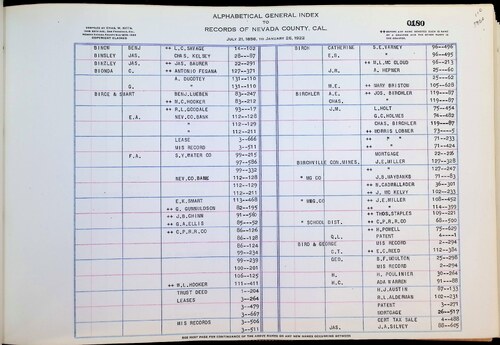 ALPHABETICAL GENERAL INDEX
TO
RECORDS OF NEVADA COUNTY, CAL.
JULY 21, 1856, to JANUARY 28, 1922
0180
BINON BENJ ++ L.D. SAVAGE 14--102
BINGLEY JAS. CHAS. KELSEY 28--87
BINZLEY JAS. ++ JAS. BAURER 22--291
BIONDA C. ++ ANTONIO PEGANA 127--371
A. DUCOTEY 131--110
G. " 131--110
BIRCE & SMART BENJ. LUEBEN 83--247
++ H.C. HOOKER 83--212
++ R.L. GOODALE 93--117
E.A. NEV.CO.BANK 112--128
" 112--129
" 112--211
LEASE 3--666
MIS RECORD 3--511
F.A. S.Y. WATER CO 99--215
97--586
99--332
NEV.CO.BANK 112--128
112--129
112--211
E.K. SMART 113--468
++ G. GUNNULDSON 82--195
++ J.B. CHINN 91--560
++ G.A. ELLIS 85--52
++ C.P.R.R.CO 86--126
86--128
86--124
99--234
99--239
100--201
106--125
++ R.L. HOOKER 111--411
TRUST DEED 1--204
LEASES 3--264
3--479
3--667
MIS RECORDS 3--506
3--511
BIRCH CATHERINE S.E. VARNEY 96--496
E.B. " 96--496
++ H.L. MC CLOUD 96--213
J.R. A. HEFNER 25--60
25--62
M.E. ++ MARY BRISTOW 105--628
BIRCHLER A.E. ++ JOS. BIRCHLER 119--87
CHAS. " 119--87
J.M. L. HOLT 75--454
G.C. HOLMES 74--482
CHAS. BIRCHLER 119--87
++ MORRIS LOBNER 73---5
++ " " 71--233
++ " " 71--424
MORTGAGE 22--206
BIRCHVILLE CON.MINES, J.E. MILLER 127--328
" 127--247
" MG CO J.B. MAYBANKS 71--83
++ B. CADWALLADER 36--301
++ J. MC KELVY 102--233
" MNG. CO ++ J.E. MILLER 108--452
++ " 114--399
++ THOS. STAPLES 109--221
" SCHOOL DIST. ++ C.P.R.R.CO 68--500
++ N. POWELL 75--629
G.L. PATENT 4---1
BIRD & GEORGE MIS RECORD 2--294
C.T. ++ E.C. REED 112--384
GEO. B.F. MOULTON 25--298
MIS RECORD 2--294
H. H. POULINIER 30--264
H.C. ADA WARREN 91--88
H.J. AUSTIN 97--133
R.L. ALDERMAN 102--231
PATENT 3--271
MORTGAGE 26--517
CERT TAX SALE 4--488
JAS. J.A. SILVEY 88--625